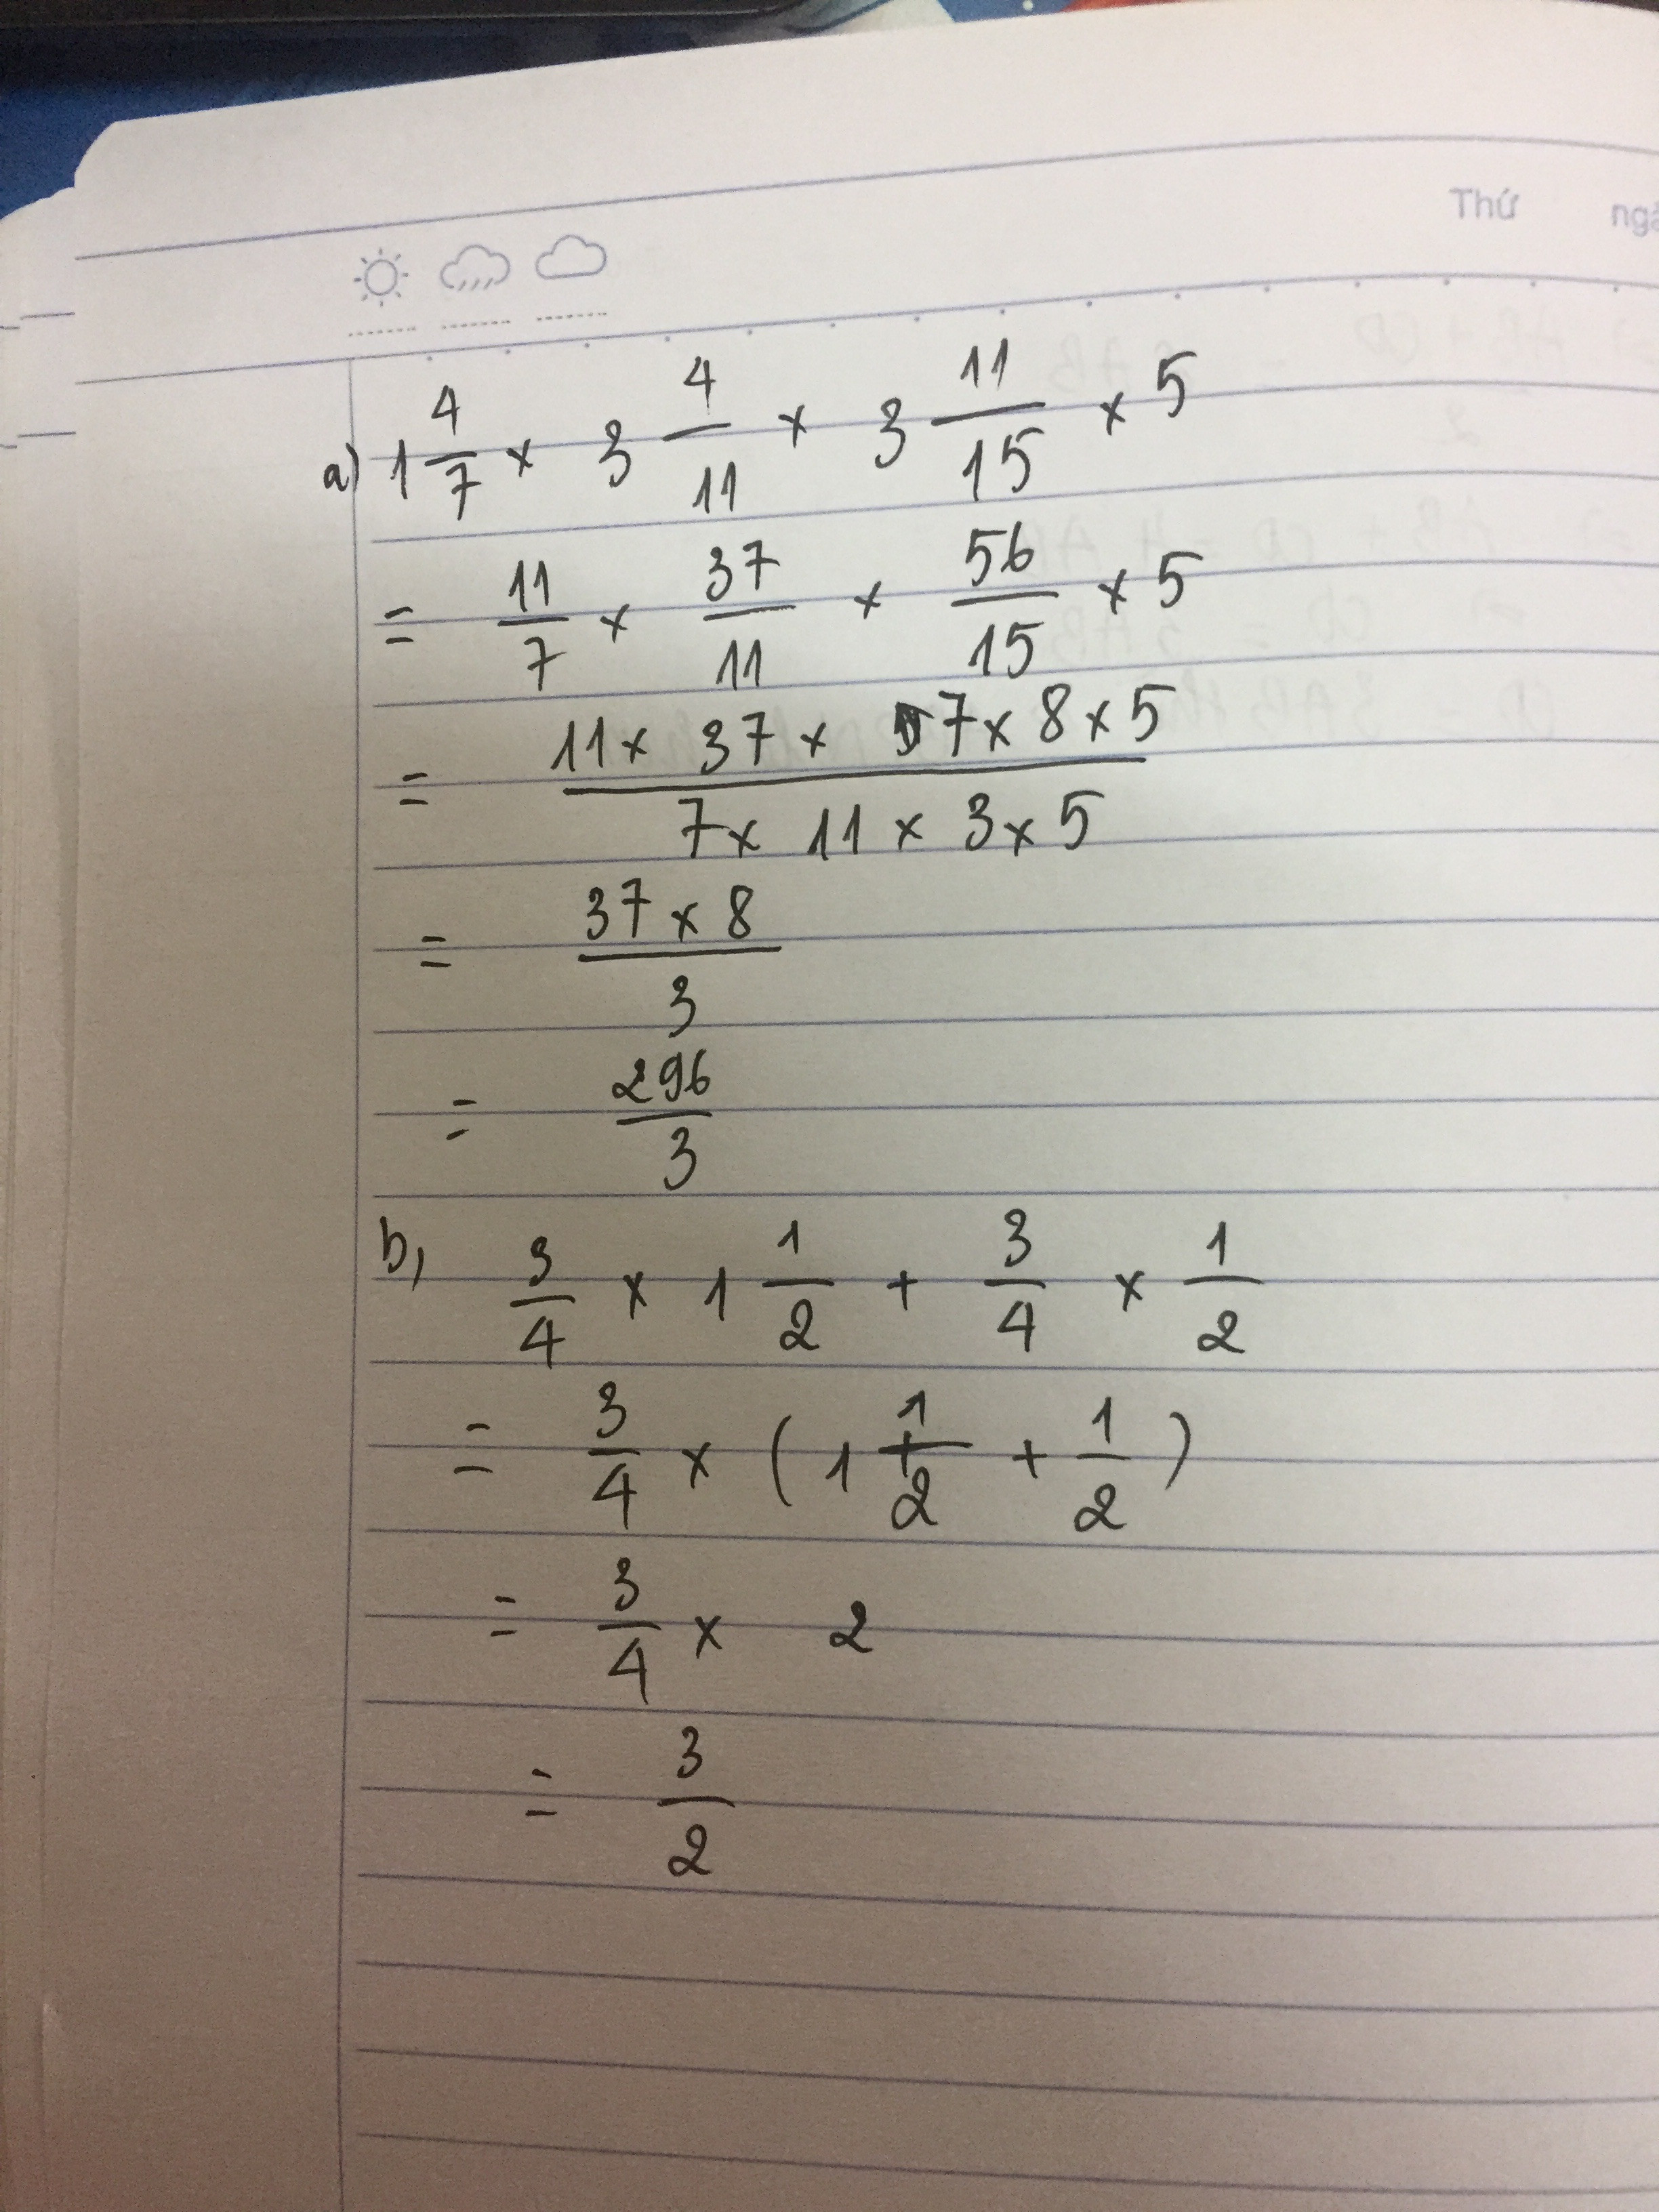 Thứ ngà
a) 1 4/7 × 3 4/11 × 3 11/15 × 5
= 11/7 × 37/11 × 56/15 × 5
= (11 × 37 × 7 × 8 × 5)/(7 × 11 × 3 × 5)
= (37 × 8)/3
= 296/3
b, 3/4 × 1 1/2 + 3/4 × 1/2
= 3/4 × (1 1/2 + 1/2)
= 3/4 × 2
= 3/2